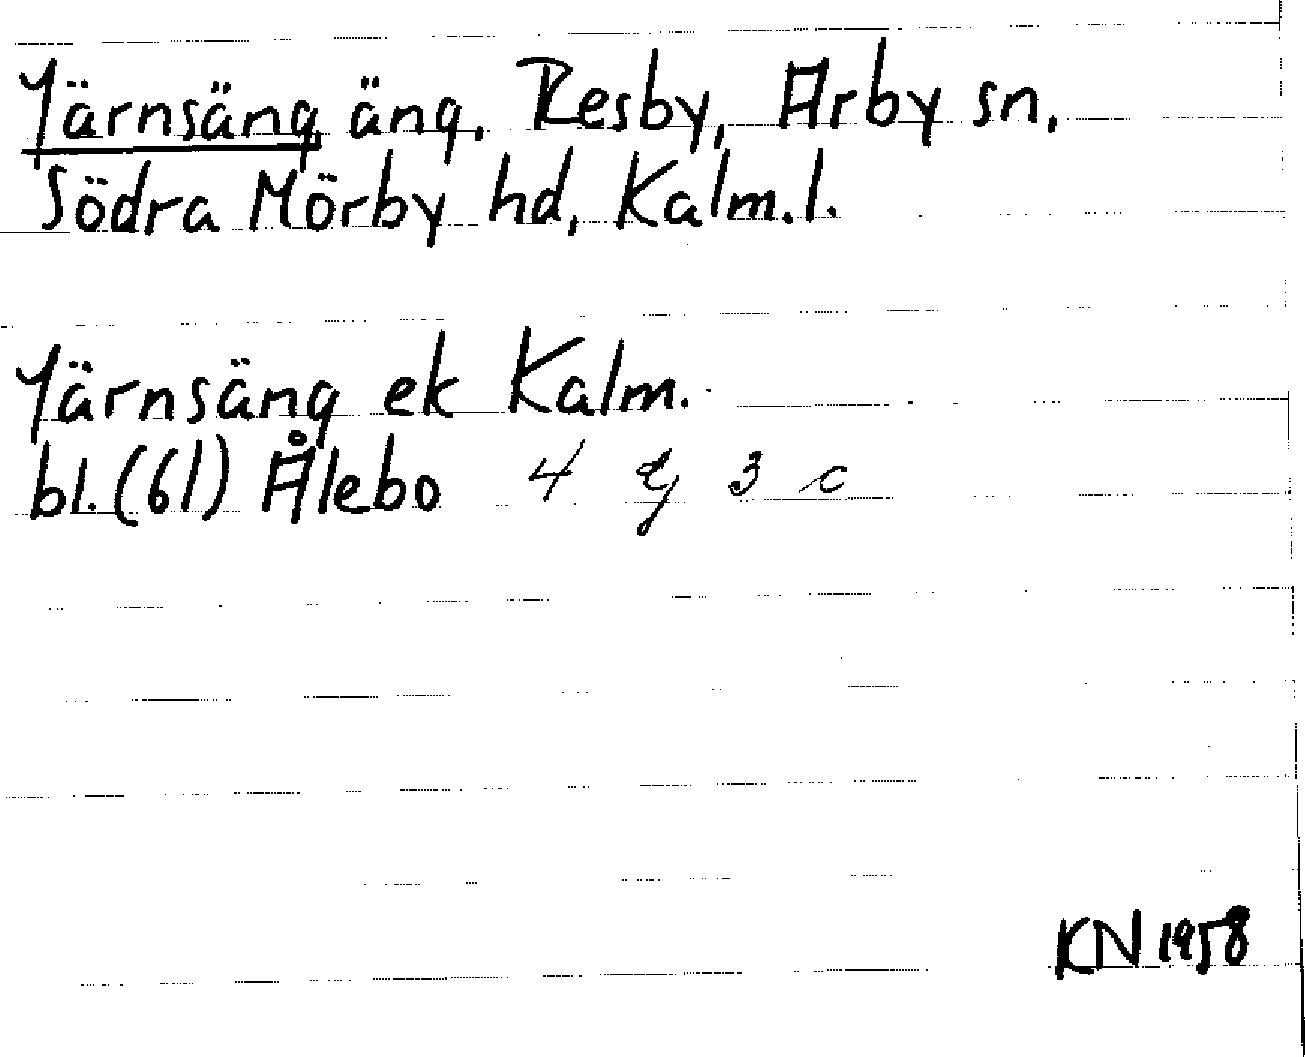 Järnsäng äng, Resby, Arby sn,
Södra Mörby hd, Kalm.l.
Järnsäng ek Kalm.
bl.(61) Ålebo 4 g 3 c
KN 1958